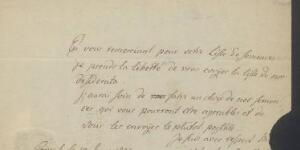 En vous remerciant pour votre Liste de semences
je prends la liberté de vous envoyer la Liste de mes
desiderata.
J'aurai soin de faire un choix de mes semen
ces qui vous pourront être agréable et de
vous les envoyer le plutot possible.
Je suis avec respect